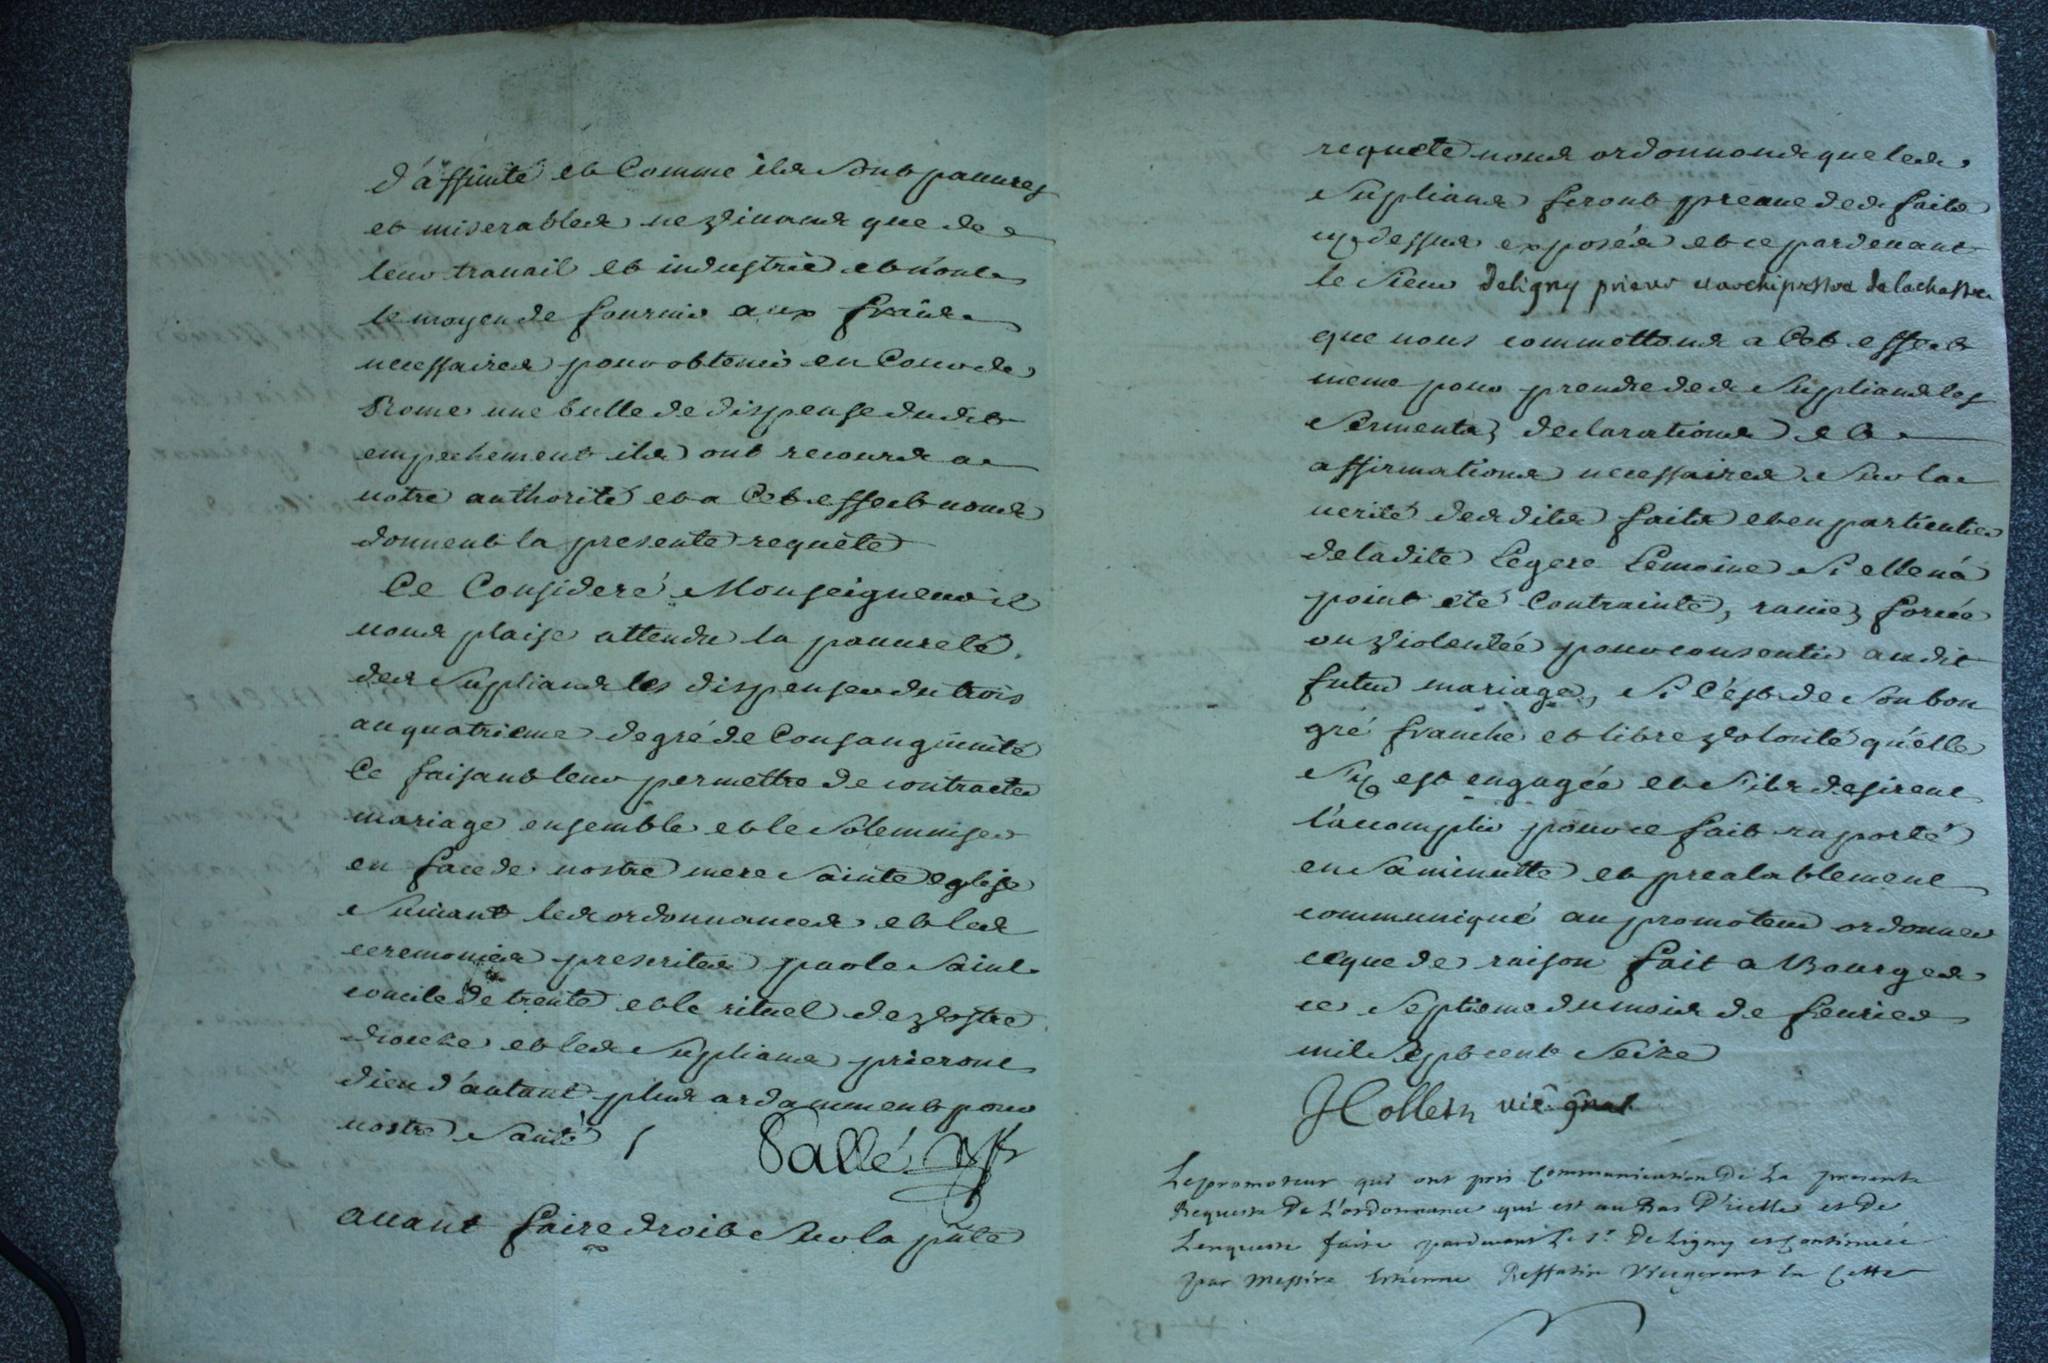 d'affinité et Comme ils sont pauures
et miserables ne viuans que de
leur travail et industrie et n'ont
le moyen de fournir aux fraîds
necessaires pour obtenir en Cour de
Rome une bulle de dispense dudit
empechement ils ont recours a
votre authorité et a Cet effect vous
donnent la presente requête
Ce Consideré Monseigneur il
vous plaise attendu la pauureté
des Supliants les dispenser du trois
au quatrieme degré de Consanguinité
Ce faisant leur permettre de contracter
mariage ensemble et le Solemniser
en face de nostre mere Sainte eglise
Suiuant les ordonnances et les
ceremonies prescrites par le Saint
concile de trente et le rituel de vostre
diocese et les Supliants prieront
dieu d'autant plus ardamment pour
vostre Santé
Pallé
auant faire droit Sur la pnte
requete nous ordonnons que les
Supliants feront preuue des faits
cy dessus exposés et ce pardeuant
le Sieur Deligny prieur et archiprestre de la chastre
que nous commettons a Cet effect
meme pour prendre des Supliants les
Serments, declarations et
affirmations necessaires Sur la
verité desdits faits et en particulier
de ladite Legere Lemoine Si elle n'a
point eté Contrainte, rauie, forcée
ou violentée pour consentir audit
futur mariage, Si C'est de Son bon
gré franche et libre volonté qu'elle
S'y est engagée et S'ils desirent
l'accomplir pour ce fait raporté
en Sa minutte et prealablement
communiqué au promoteur ordonner
ce que de raison fait a Bourges
ce Septieme du mois de feurier
mil Sept cent Seize
JCollesn vic gnal
Le promoteur qui ont pris Communication De La presente
Requeste De L'ordonnance qui est au Bas D'icelle et De
Lenqueste faite pardeuant Le Sr. De Ligny et Continuée
par Messire Estienne Reffatin Vicegerent en Cette